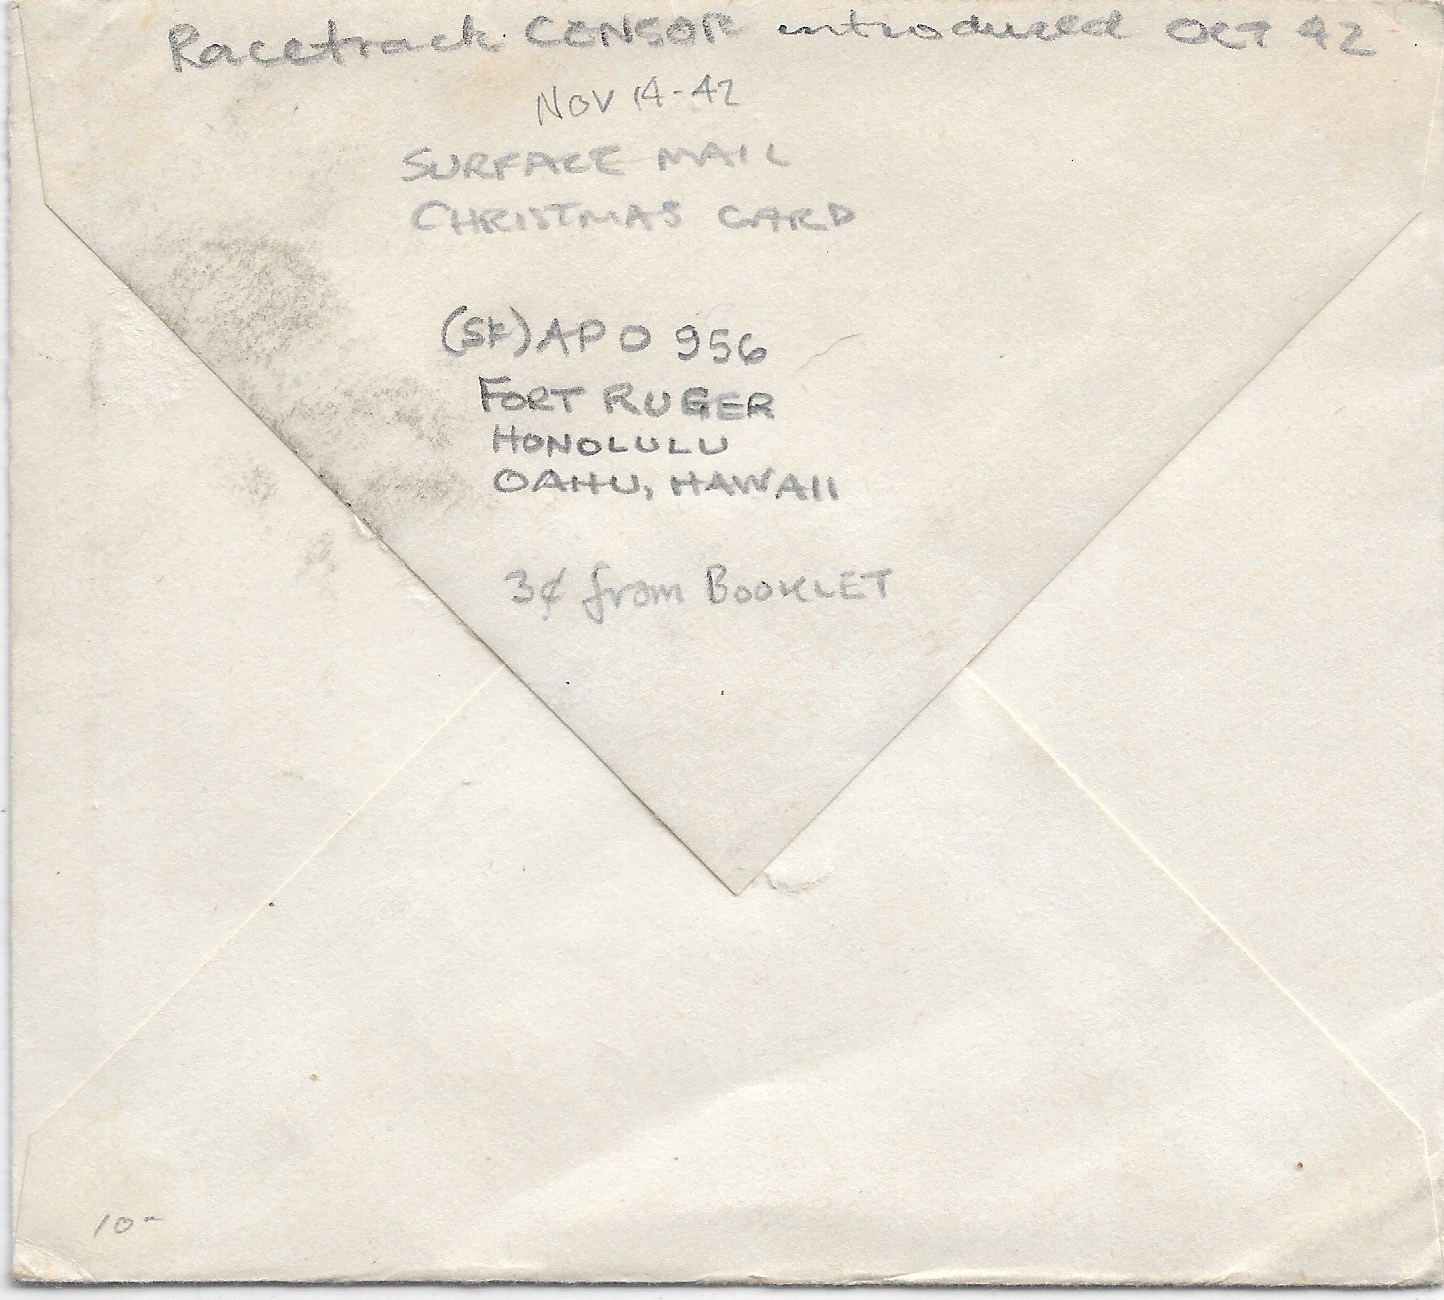 Racetrack CENSOR introduced OCT 42
NOV 14-42
SURFACE MAIL
CHRISTMAS CARD
(SF) APO 956
FORT RUGER
HONOLULU
OAHU, HAWAII
3¢ from BOOKLET
10-